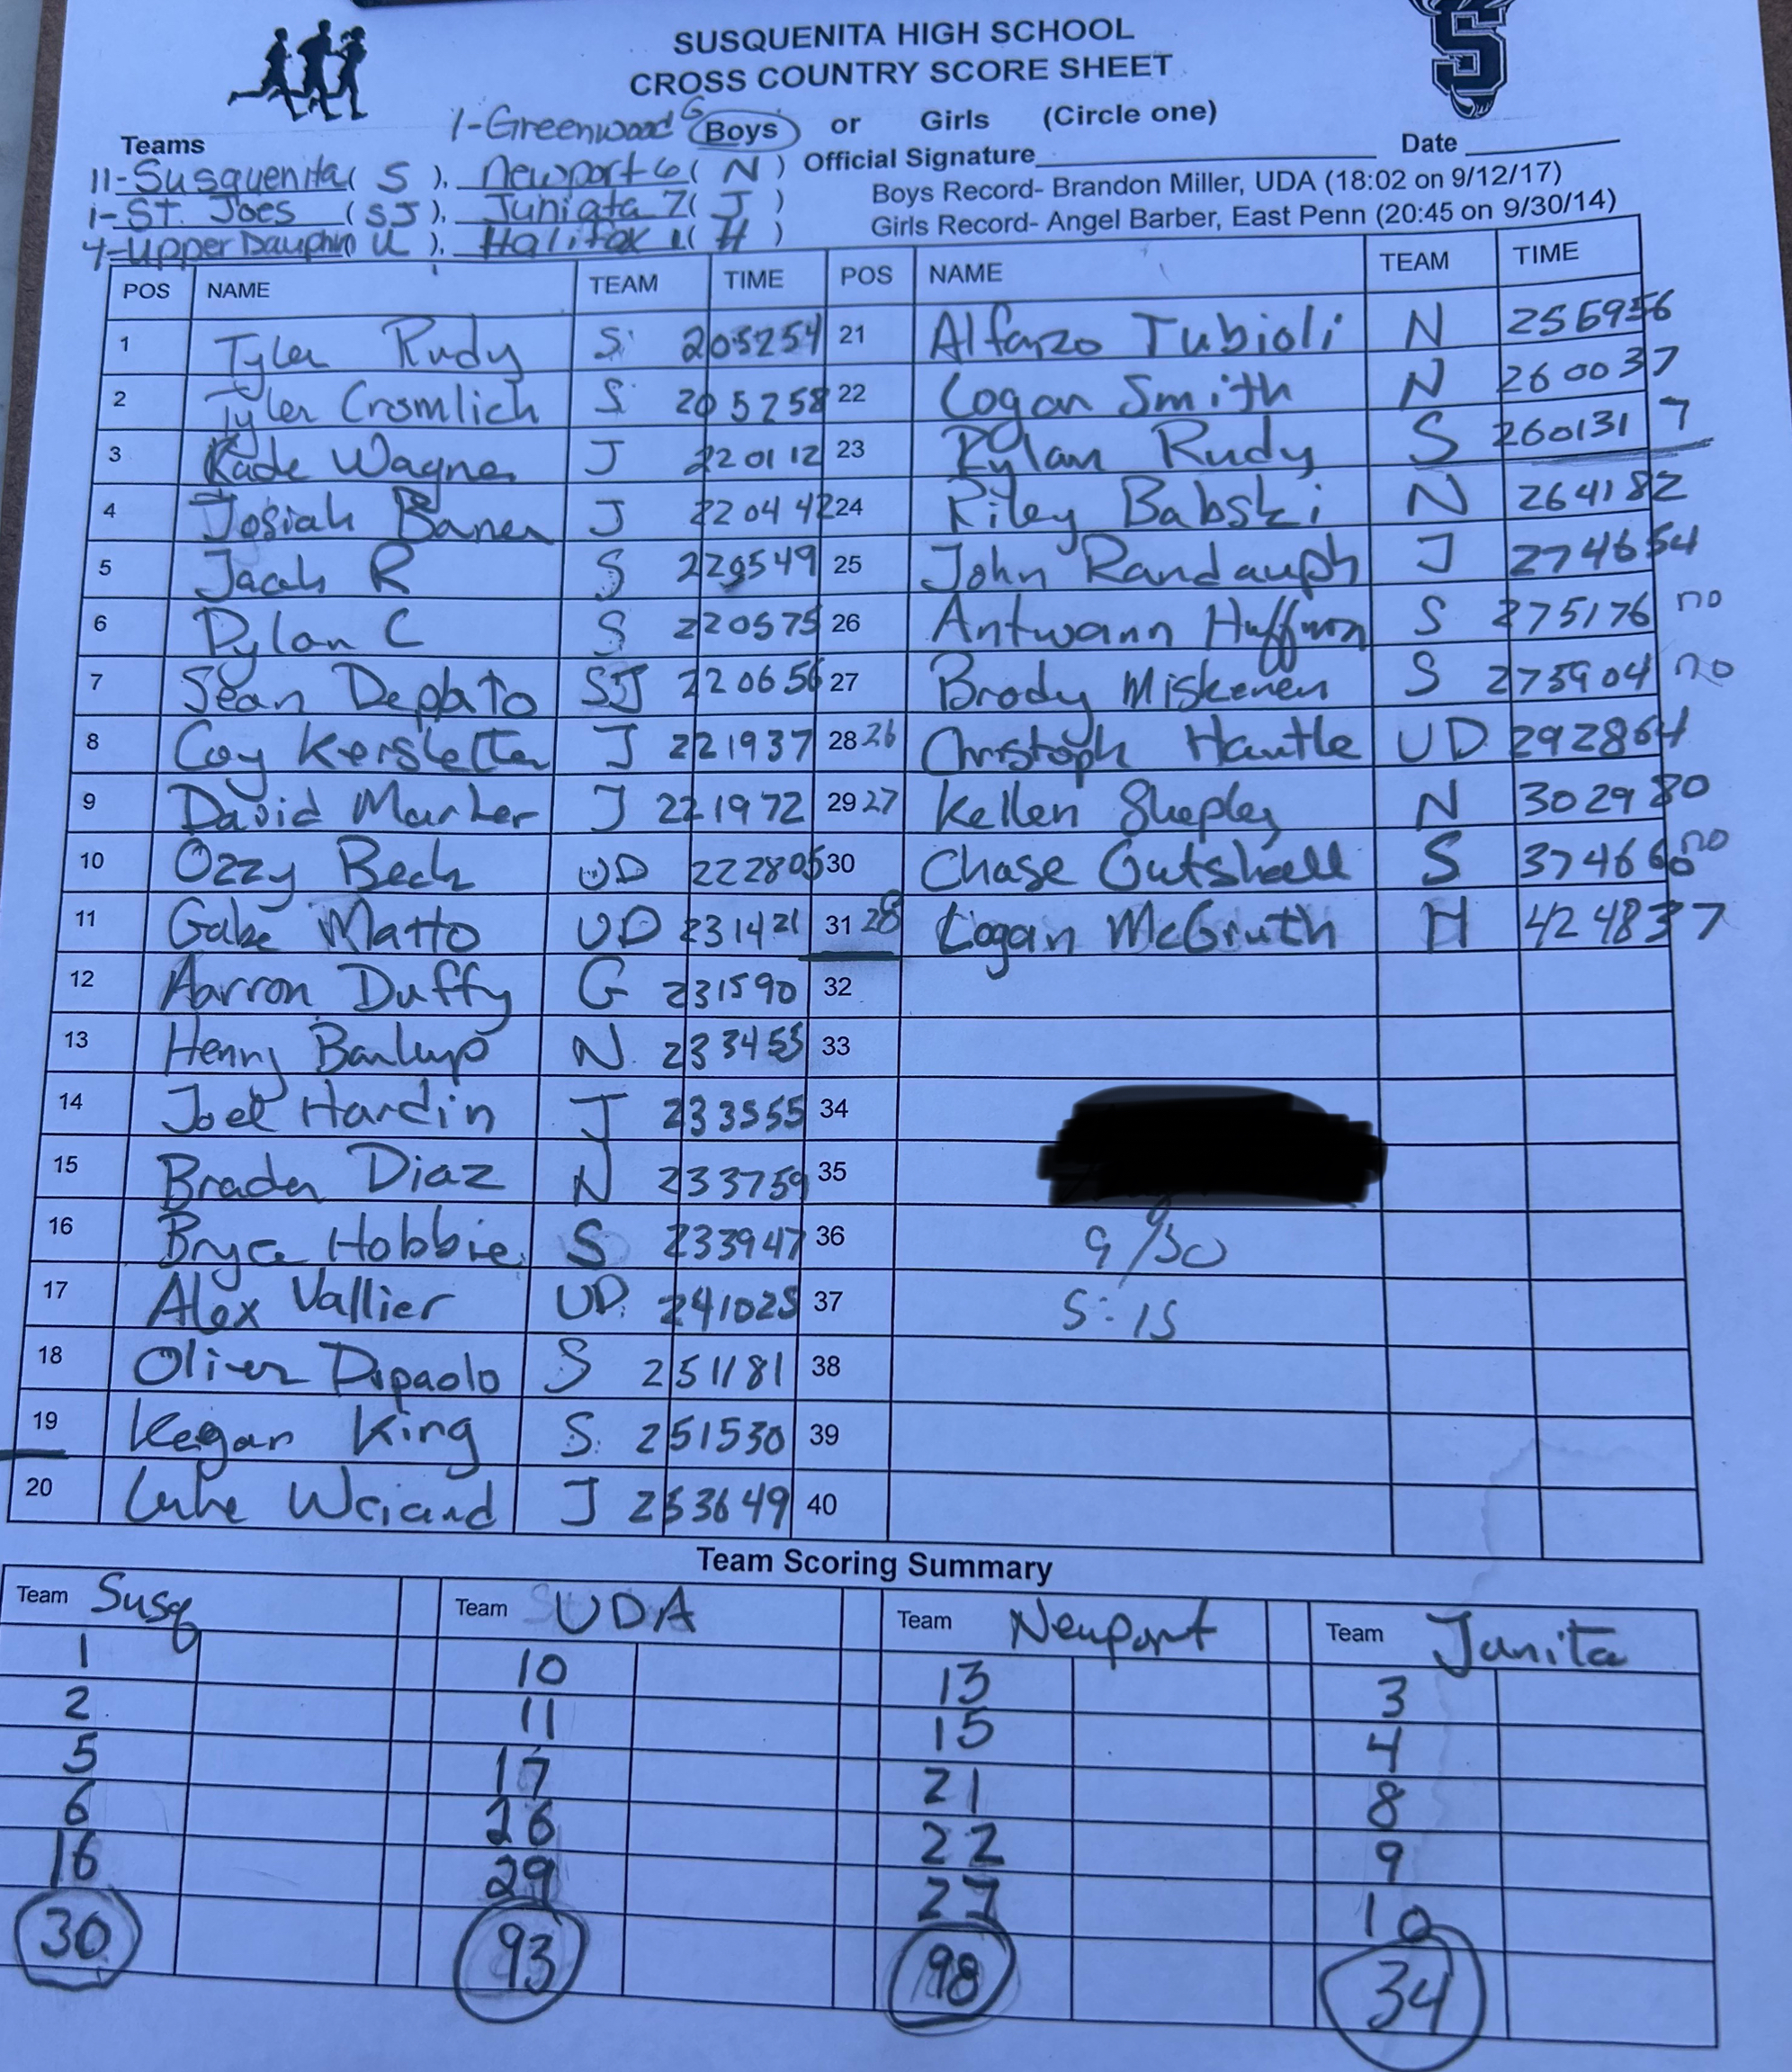 SUSQUENITA HIGH SCHOOL
CROSS COUNTRY SCORE SHEET
S
1-Greenwood G Boys or Girls (Circle one)
Teams
Date
11-Susquenita( S ), Newport 6( N ) Official Signature
Boys Record- Brandon Miller, UDA (18:02 on 9/12/17)
1-St. Joes (SJ), Juniata 7( J )
Girls Record- Angel Barber, East Penn (20:45 on 9/30/14)
4-Upper Dauphin( U ), Halifax 1( H )
POS NAME TEAM TIME POS NAME TEAM TIME
1 Tyler Rudy S 205254 21 Alfanzo Tubioli N 255956
2 Tyler Cromlich S 205258 22 Logan Smith N 260037
3 Kade Wagner J 220112 23 Rylan Rudy S 260131 7
4 Josiah Baner J 220442 24 Riley Babski N 264182
5 Jacah R S 220549 25 John Randauph J 274654
6 Dylan C S 220575 26 Antwann Huffman S 275176 no
7 Sean Deplato SJ 220656 27 Brody Miskenen S 275904 no
8 Coy Kerstetter J 221937 28 26 Christoph Hautle UD 292864
9 David Marker J 221972 29 27 Kellen Shepley N 302980
10 Ozzy Beck UD 222805 30 Chase Gutshall S 374660 no
11 Gabe Matto UD 231421 31 28 Logan McGruth H 424837
12 Aarron Duffy G 231590 32
13 Henry Banlup N 233455 33
14 Joel Hardin J 233555 34
15 Braden Diaz N 233759 35
16 Bryce Hobbie S 233947 36 9/30
17 Alex Vallier UD 241025 37 5:15
18 Oliver Dipaolo S 251181 38
19 Kegan King S 251530 39
20 Luke Weiand J 253649 40
Team Scoring Summary
Team Susq Team UDA Team Newport Team Junita
1 10 13 3
2 11 15 4
5 17 21 8
6 26 22 9
16 29 27 10
30 93 98 34